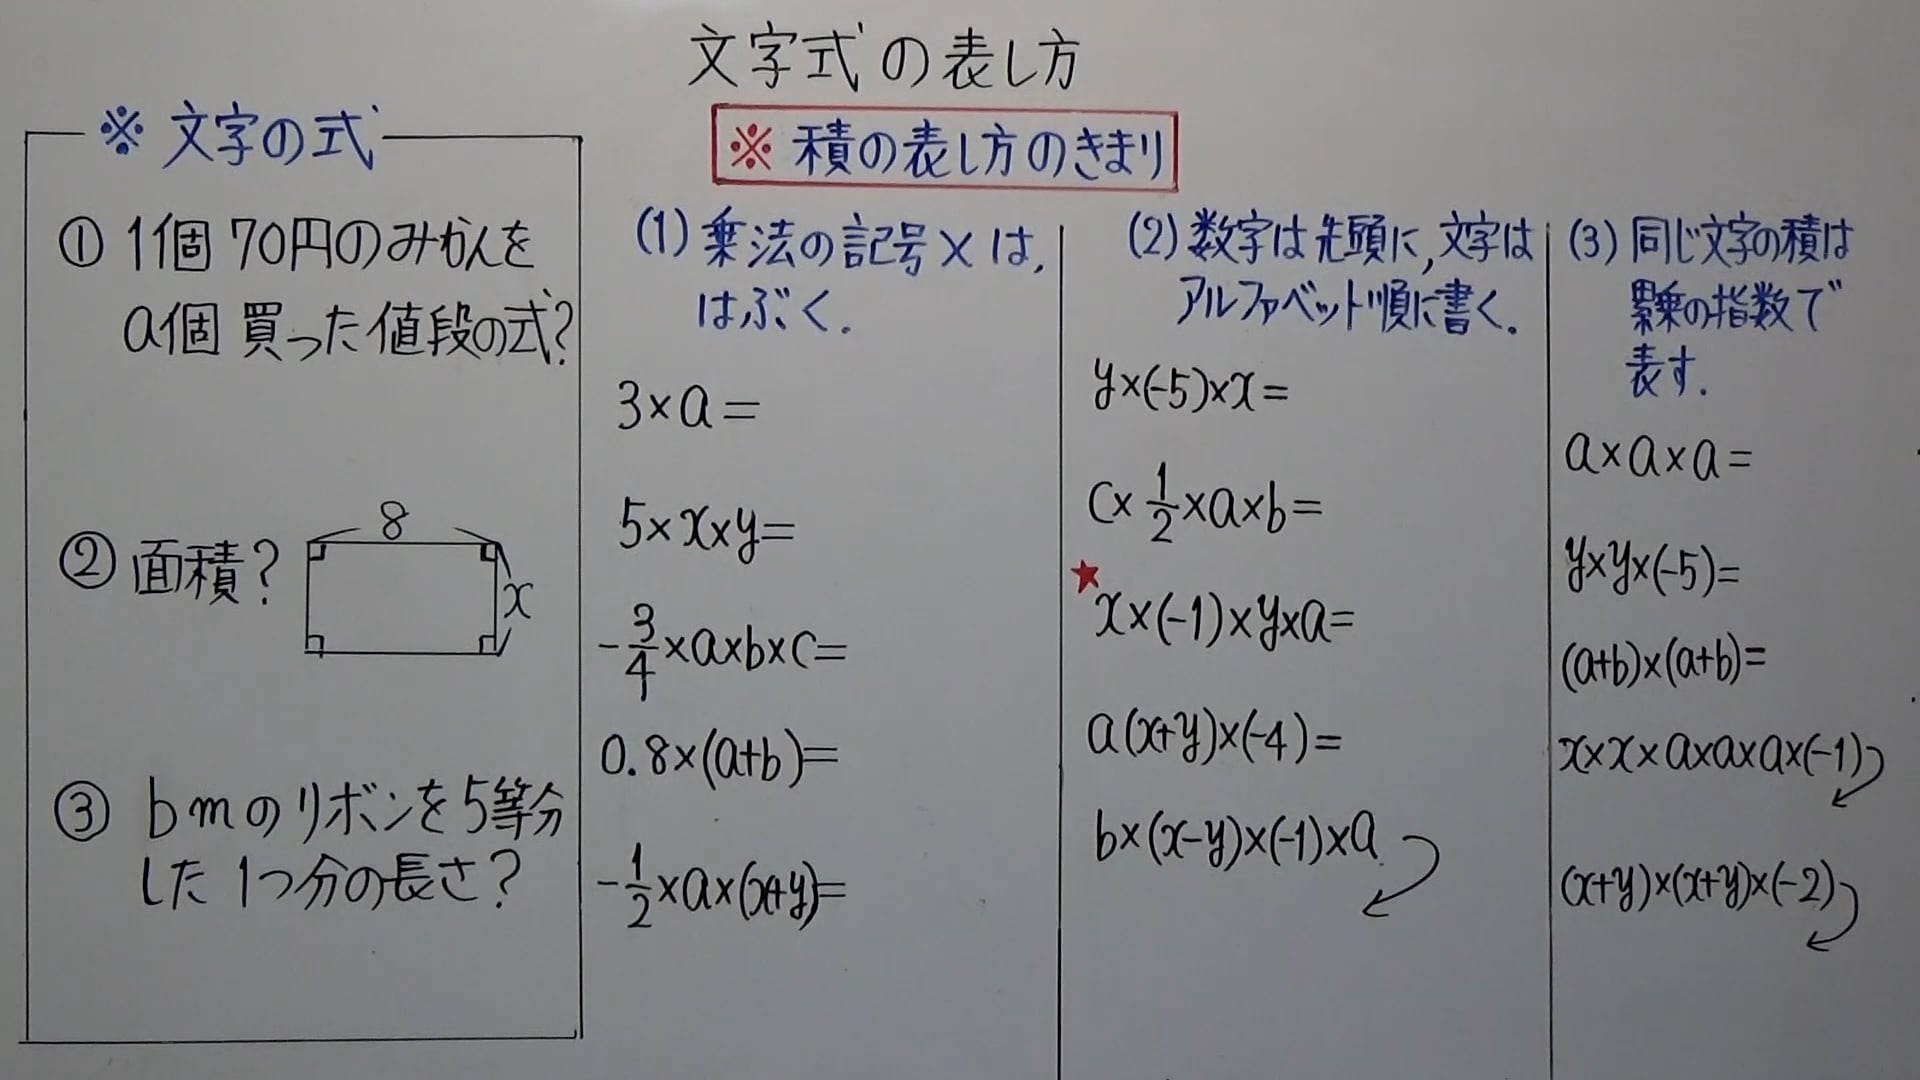 文字式の表し方
※ 文字の式
① 1個 70円のみかんを
a個 買った値段の式?
② 面積?
8
x
③ bmのリボンを5等分
した 1つ分の長さ?
※ 積の表し方のきまり
(1) 乗法の記号×は,
はぶく.
3×a=
5×x×y=
-3/4×a×b×c=
0.8×(a+b)=
-1/2×a×(x+y)=
(2) 数字は先頭に,文字は
アルファベット順に書く.
y×(-5)×x=
c×1/2×a×b=
★x×(-1)×y×a=
a(x+y)×(-4)=
b×(x-y)×(-1)×a
(3) 同じ文字の積は
累乗の指数で
表す.
a×a×a=
y×y×(-5)=
(a+b)×(a+b)=
x×x×a×a×a×(-1)
(x+y)×(x+y)×(-2)